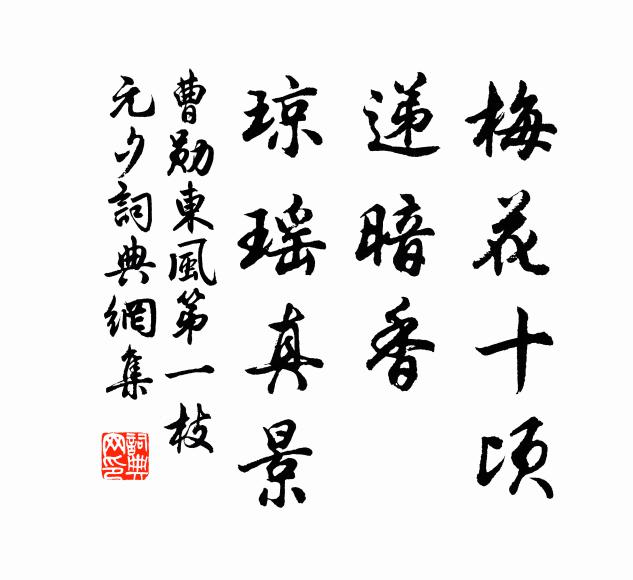 梅花十顷
递暗香
琼瑶真景
曹勋東風第一枝
元夕詞典網集
詞典網印